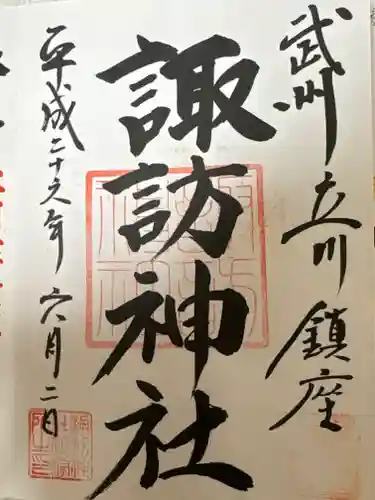 武州立川鎮座
諏訪神社
平成二十六年六月二日